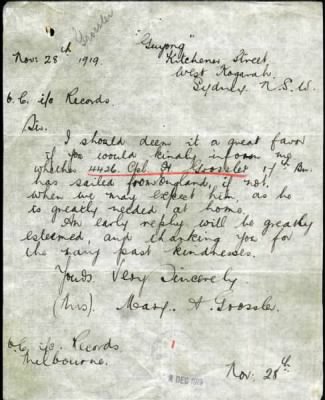 Grossler
"Guyong"
Nov: 28th 1919.
Kitchener Street
West Kogarah
Sydney N.S.W.
O.C. i/c Records.
Sir.
I should deem it a great favor
if you would kindly inform me
whether 4426 Cpl H. Grossler 17th Bn.
has sailed from England, if not
when we may expect him, as he
is greatly needed, at home.
An early reply will be greatly
esteemed, and thanking you for
the many past kindnesses.
Yours Very Sincerely
(Mrs). Mary. A Grossler
O.C. i/c. Records
Melbourne.
Nov: 28th
DEC 1919